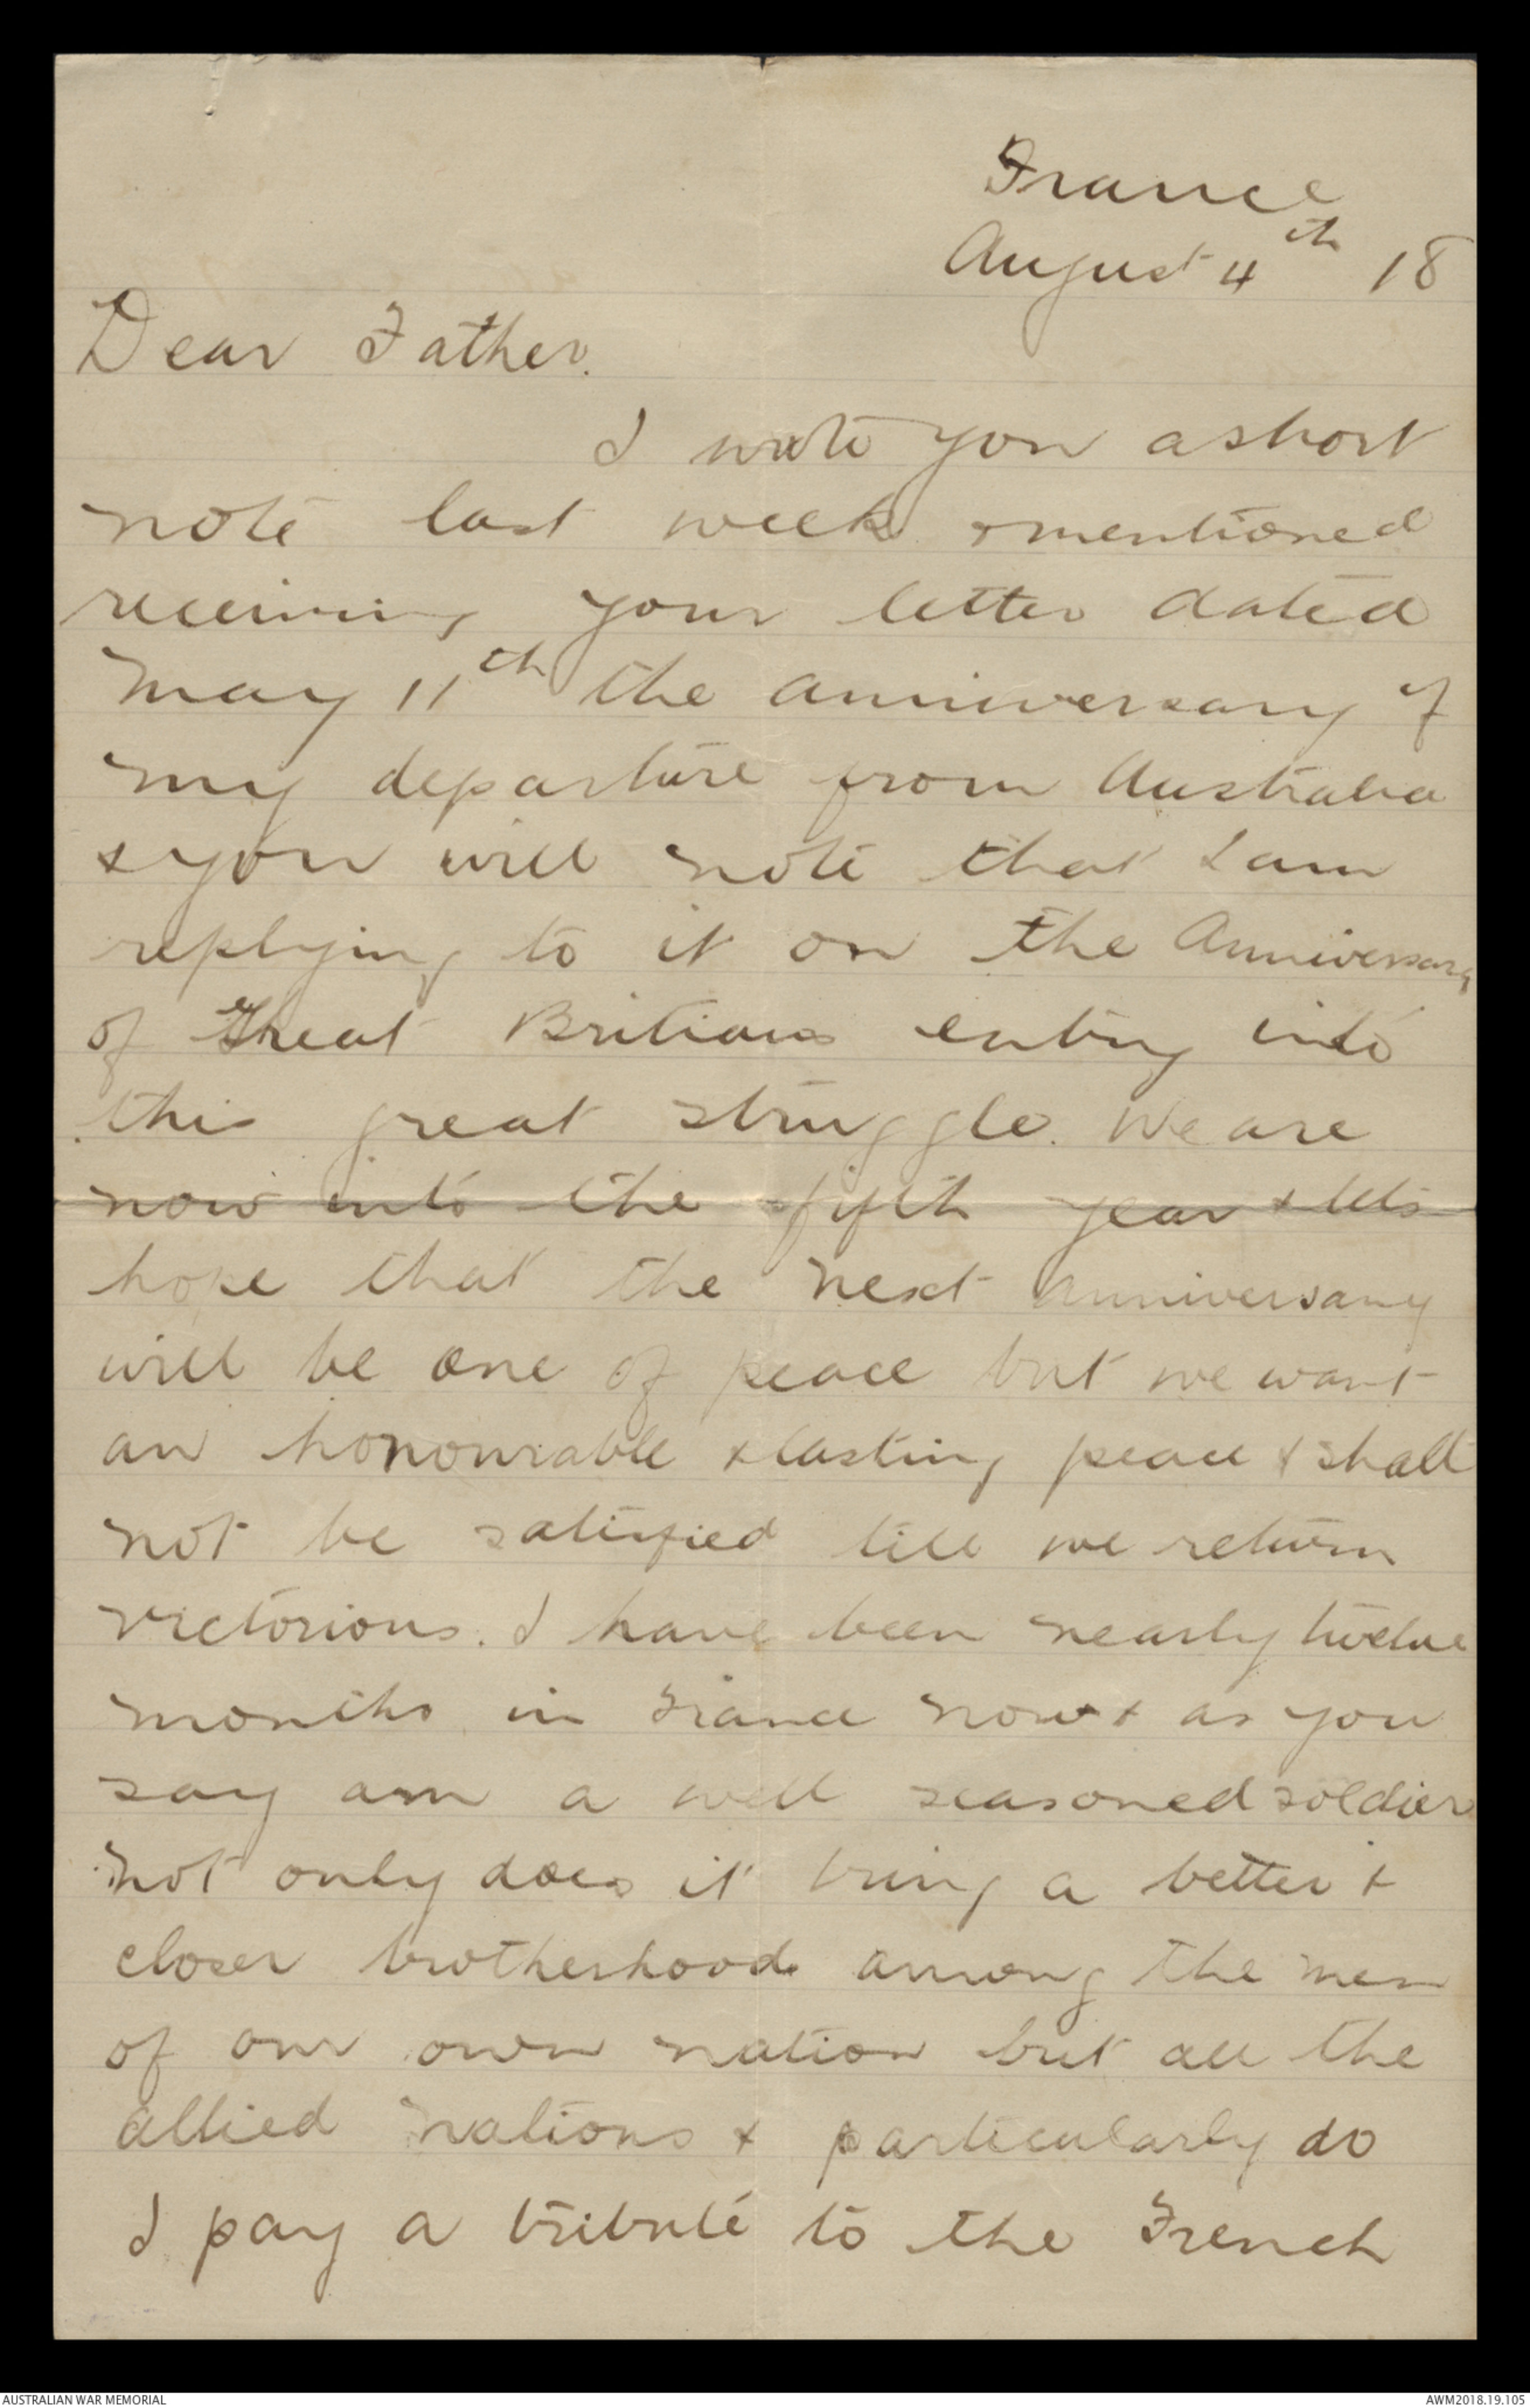 France
August 4th 18
Dear Father.
I wrote you a short
note last week & mentioned
receiving your letter dated
May 11th the anniversary of
my departure from Australia
& you will note that I am
replying to it on the Anniversary
of Great Britians entry into
this great struggle. We are
now into the fifth year & lets
hope that the next anniversary
will be one of peace but we want
an honourable & lasting peace & shall
not be satisfied till we return
victorious. I have been nearly twelve
months in France now & as you
say am a well seasoned soldier
not only does it bring a better &
closer brotherhood among the men
of our own nation but all the
allied nations & particularly do
I pay a tribute to the French
AUSTRALIAN WAR MEMORIAL
AWM2018.19.105